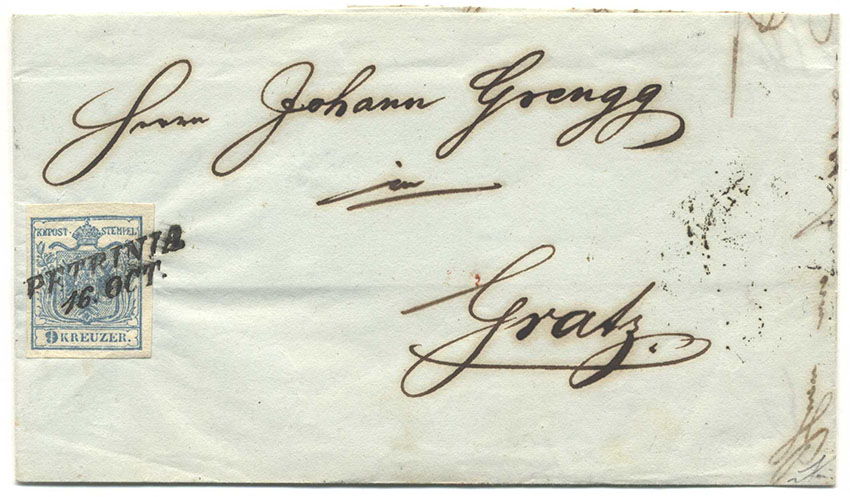 Herrn Johann Grengg
in
Gratz.
KK POST-STEMPEL
PETRINIA
16. OCT.
9 KREUZER.